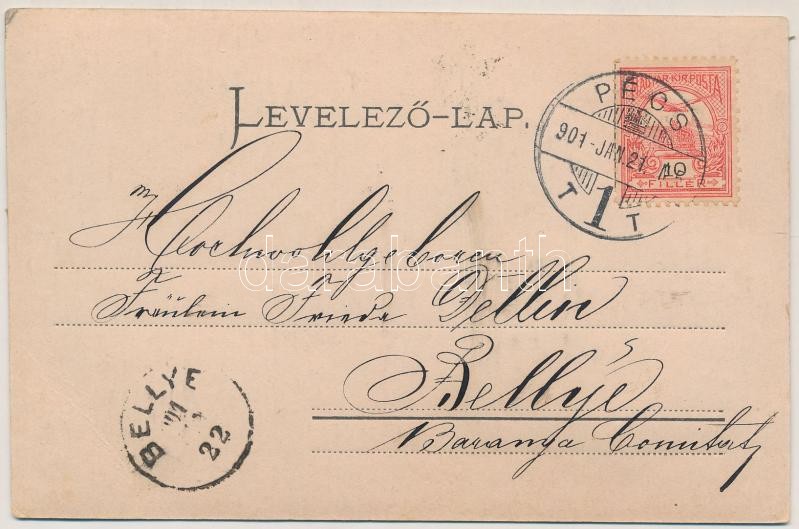 LEVELEZŐ-LAP.
MAGYAR·KIR·POSTA
10
FILLÉR
PÉCS
901-JAN.21.
T 1 T
Hochwohlgeboren
Fräulein Frieda Dellin
Bellye
Baranya Comitat
BELLYE
22
darabanth